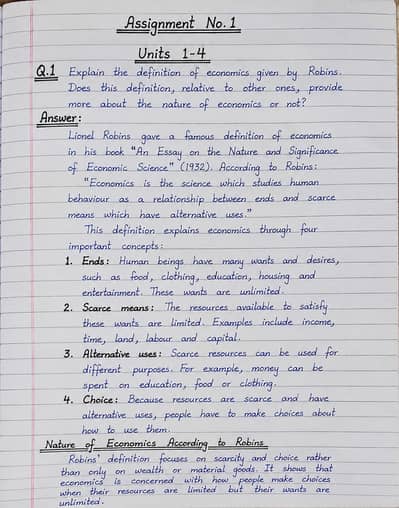 Assignment No. 1
Units 1-4
Q.1 Explain the definition of economics given by Robins.
Does this definition, relative to other ones, provide
more about the nature of economics or not?
Answer:
Lionel Robins gave a famous definition of economics
in his book "An Essay on the Nature and Significance
of Economic Science" (1932). According to Robins:
"Economics is the science which studies human
behaviour as a relationship between ends and scarce
means which have alternative uses."
This definition explains economics through four
important concepts:
1. Ends: Human beings have many wants and desires,
such as food, clothing, education, housing and
entertainment. These wants are unlimited.
2. Scarce means: The resources available to satisfy
these wants are limited. Examples include income,
time, land, labour and capital.
3. Alternative uses: Scarce resources can be used for
different purposes. For example, money can be
spent on education, food or clothing.
4. Choice: Because resources are scarce and have
alternative uses, people have to make choices about
how to use them.
Nature of Economics According to Robins
Robins' definition focuses on scarcity and choice rather
than only on wealth or material goods. It shows that
economics is concerned with how people make choices
when their resources are limited but their wants are
unlimited.